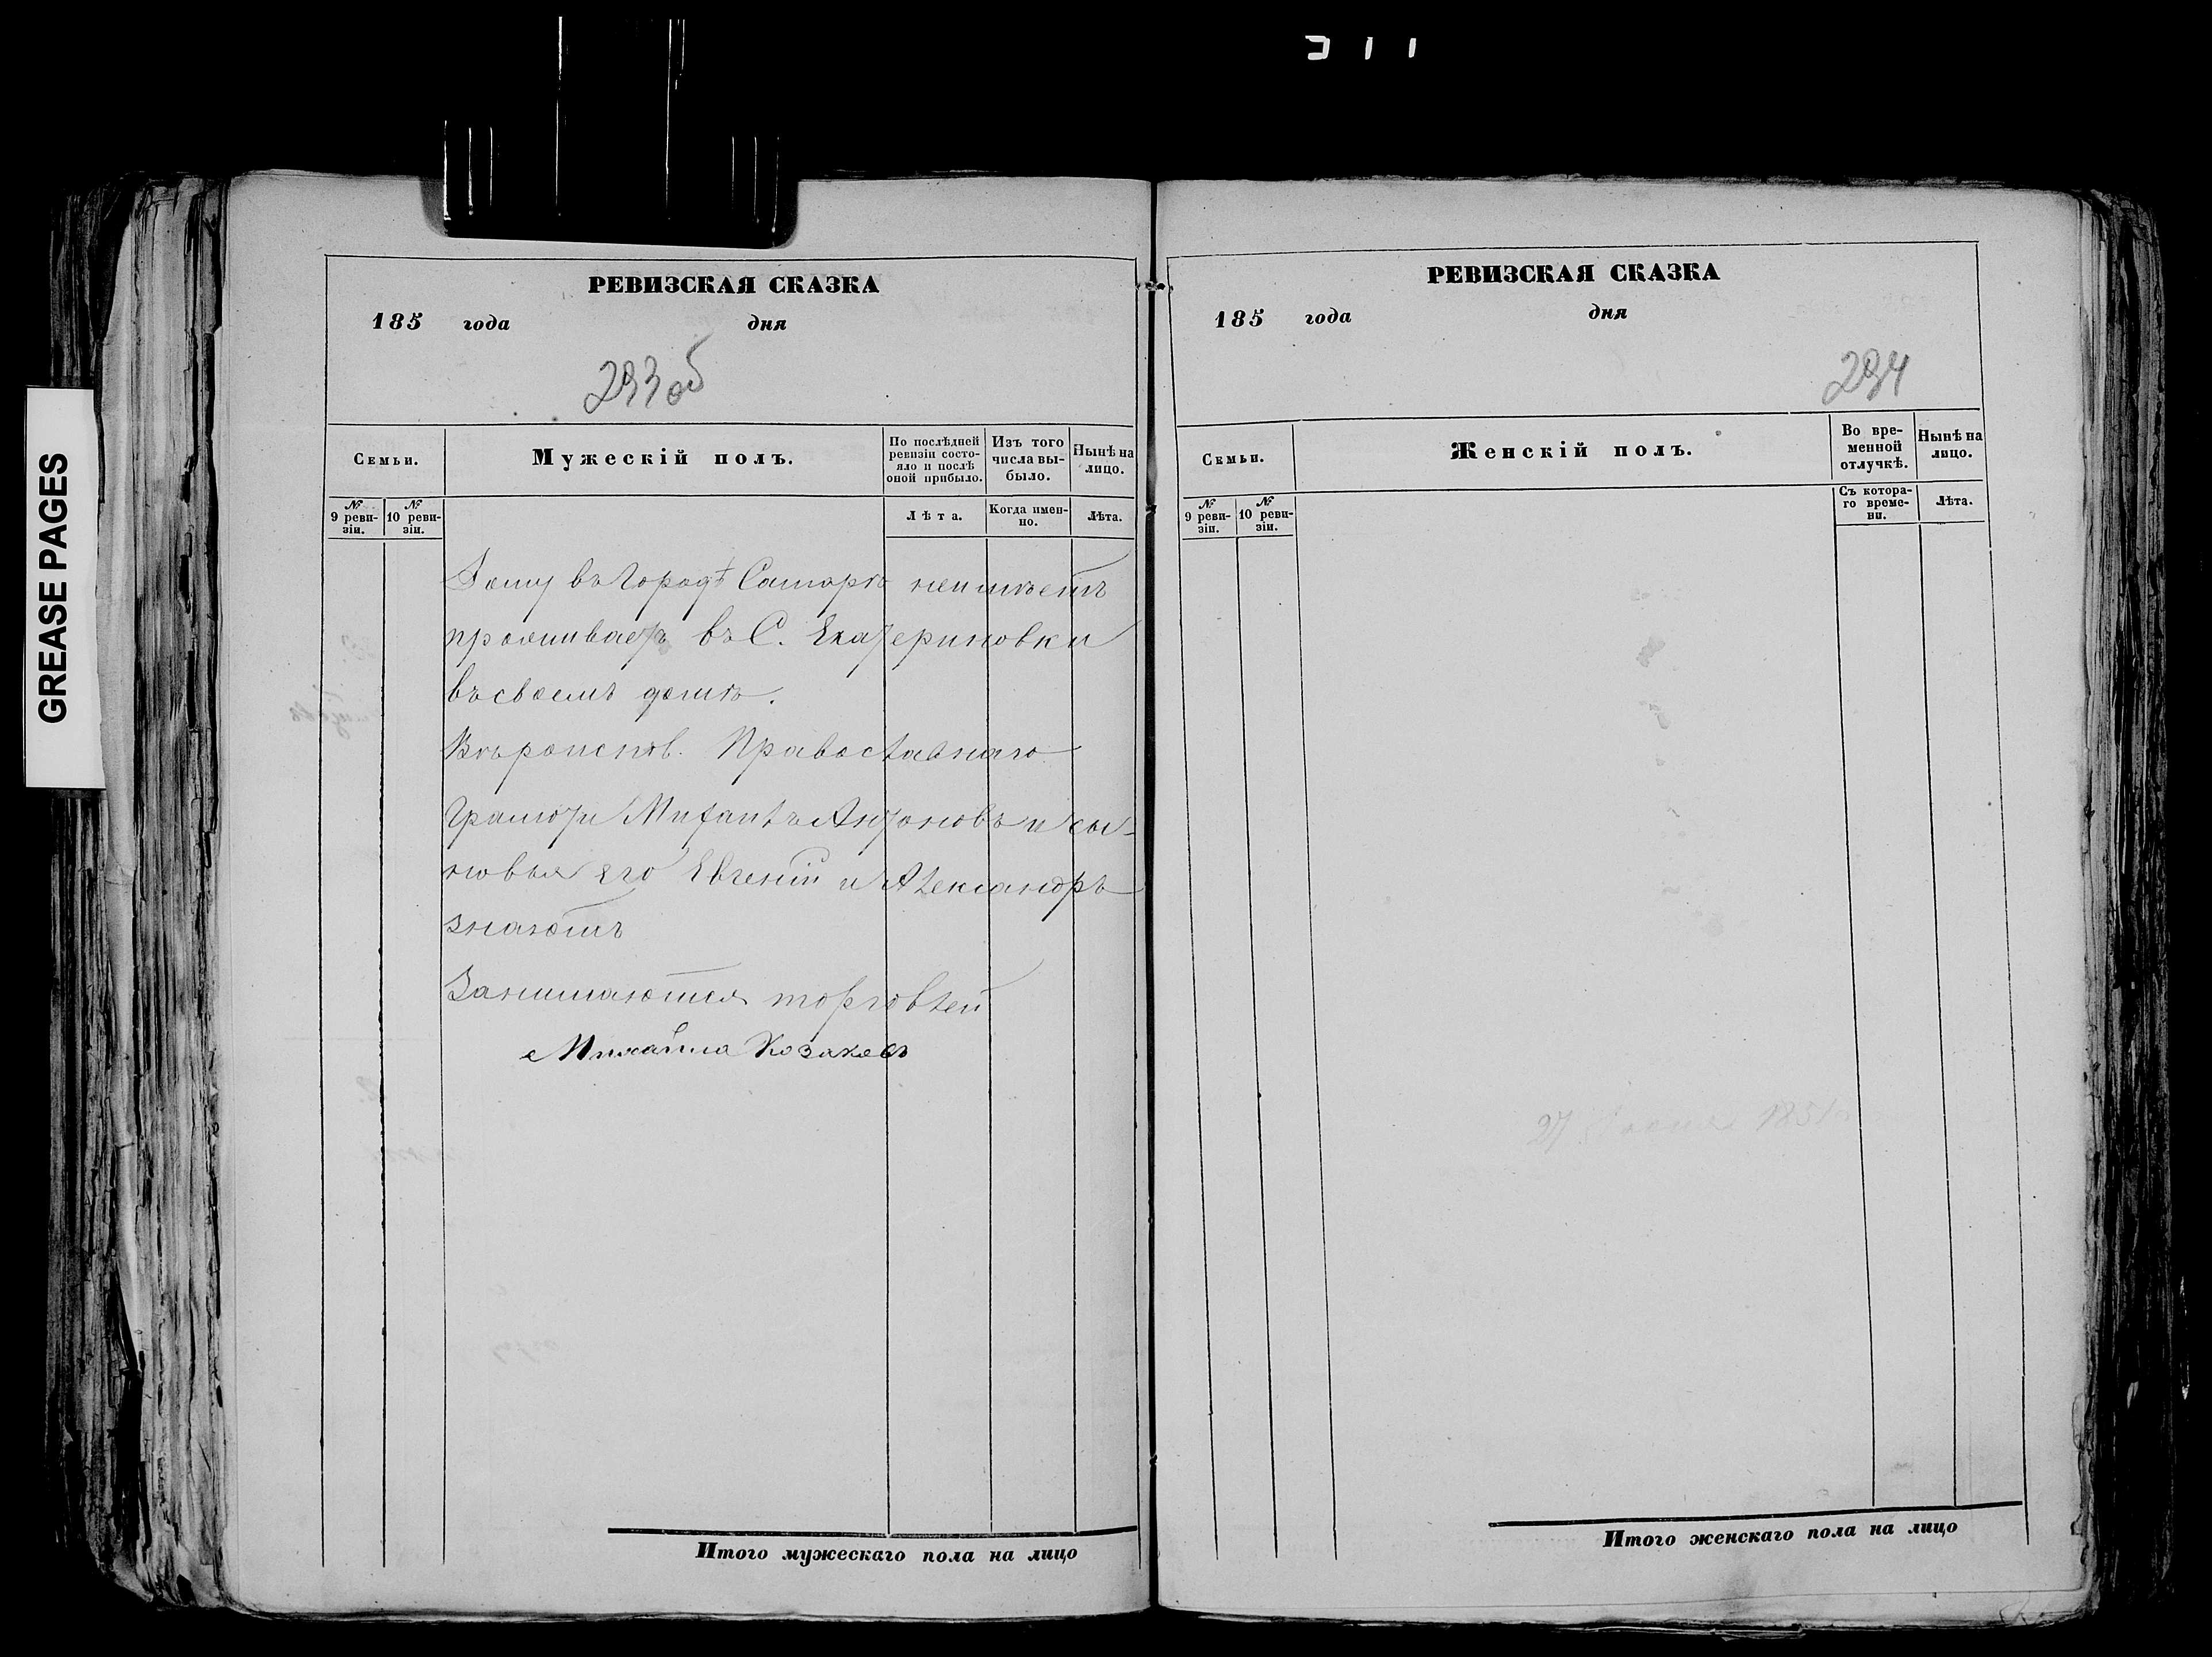 GREASE PAGES
РЕВИЗСКАЯ СКАЗКА
185 года дня
293 об
Семьи.
Мужескій полъ.
По послѣдней ревизіи состояло и послѣ оной прибыло.
Изъ того числа выбыло.
Нынѣ на лицо.
№ 9 ревизіи.
№ 10 ревизіи.
Лѣта.
Когда именно.
Лѣта.
Дому въ Городѣ Самарѣ неимѣетъ
проживаетъ въ С. Екатериновки
въ своемъ домѣ.
Вѣроиспов. Православнаго
Грамоти Михаилъ Антоновъ и сы-
новья его Евгеній и Александръ
знаютъ
Занимаются торговлей
Михайла Козаковъ
Итого мужескаго пола на лицо
РЕВИЗСКАЯ СКАЗКА
185 года дня
294
Семьи.
Женскій полъ.
Во временной отлучкѣ.
Нынѣ на лицо.
№ 9 ревизіи.
№ 10 ревизіи.
Съ котораго времени.
Лѣта.
Итого женскаго пола на лицо